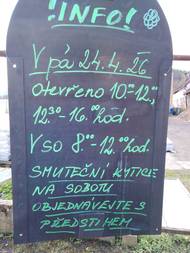 !INFO!
V pá 24.4.26
otevřeno 10⁰⁰-12⁰⁰,
12³⁰-16.⁰⁰hod.
V so 8⁰⁰-12.⁰⁰hod.
SMUTEČNÍ KYTICE
NA SOBOTU
OBJEDNÁVEJTE S
PŘEDSTIHEM